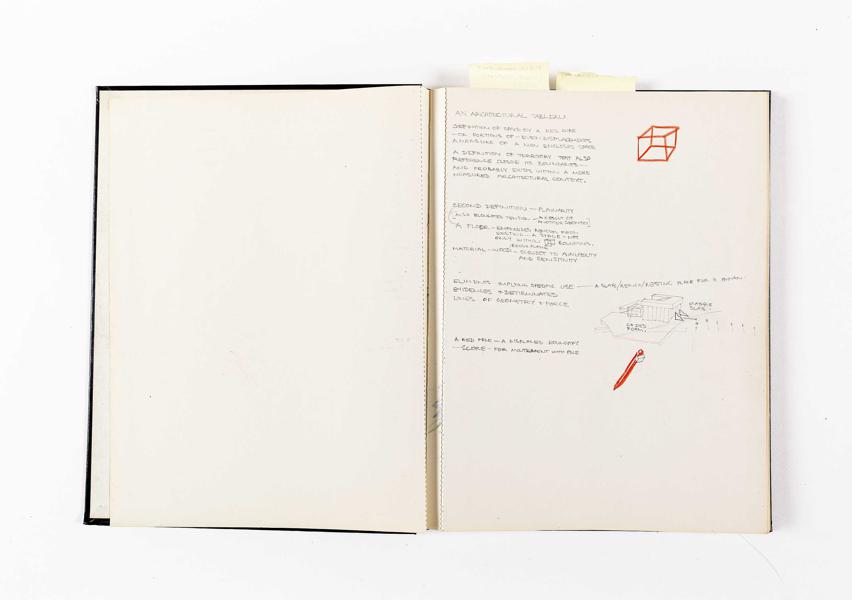 AN ARCHITECTURAL TABLEAU
DEFINITION OF SPACE BY A RED CUBE
— OR PORTIONS OF — EVEN DISPLACEMENTS
A MEASURE OF A NON ENCLOSED SPACE
A DEFINITION OF TERRITORY THAT ALSO
REFERENCE OUTSIDE ITS BOUNDARIES —
AND PROBABLY EXISTS WITHIN A MORE
MEASURED ARCHITECTURAL CONTEXT.
SECOND DEFINITION — PLANARITY
ALSO ELEVATED TENSION — A RESULT OF
A FLOOR —
EXISTING — A STAGE — NOT
ONLY WITHIN BOUNDARIES.
MATERIAL — WOOD — SUBJECT TO AVAILABILITY
AND SENSITIVITY
ELEMENTS IMPLYING SPECIFIC USE — A SLAB/ /RESTING PLACE FOR A HUMAN
EVIDENCES + DETERMINATES
LINES OF GEOMETRY + FORCE
MARBLE
SLAB
FORM
A RED POLE — A DISPLACED BOUNDARY
— SCORE — FOR MOVEMENT WITH POLE